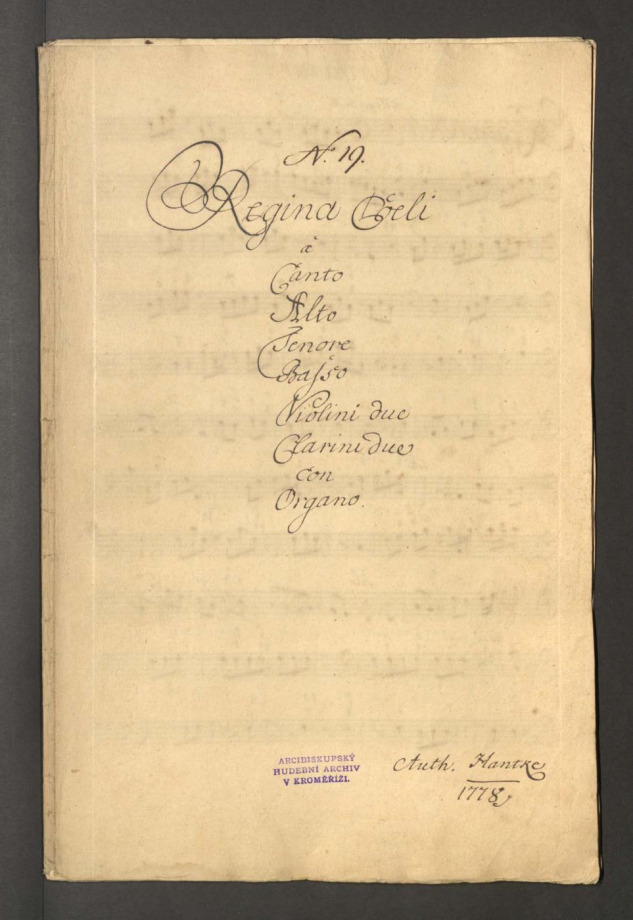 N.º 19.
Regina Coeli
à
Canto
Alto
Tenore
Basso
Violini due
Clarini due
con
Organo.
ARCIBISKUPSKÝ
HUDEBNÍ ARCHIV
V KROMĚŘÍŽI.
Auth. Hantke
1778